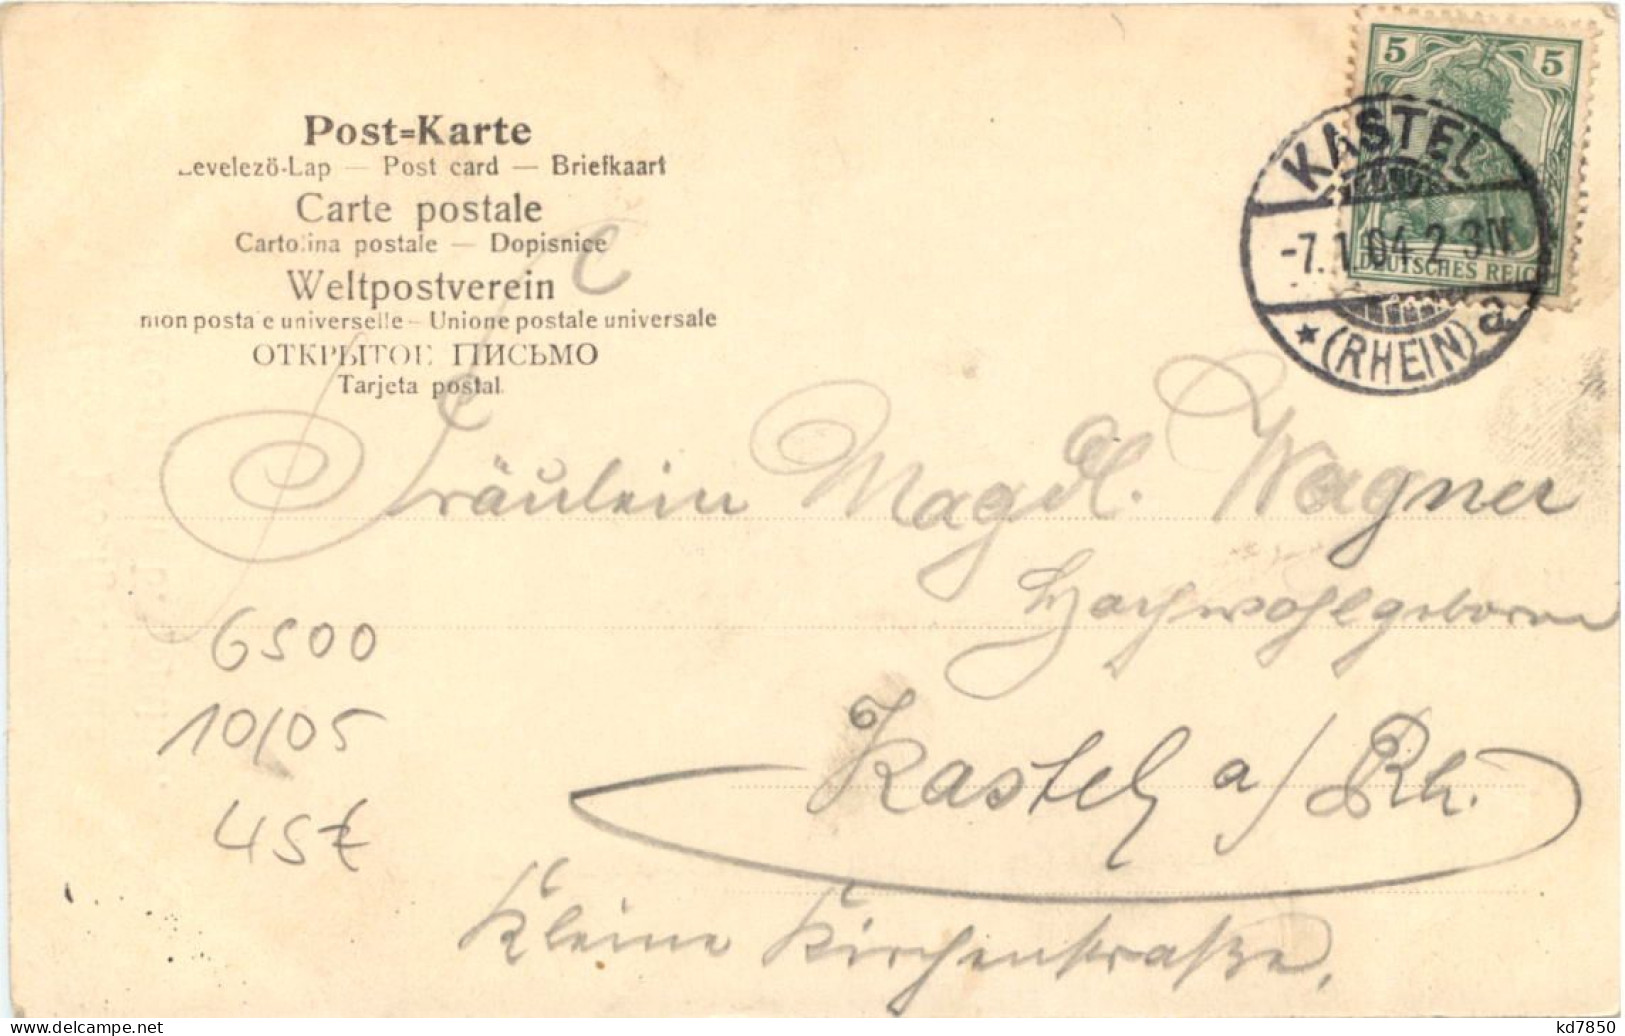 Post=Karte
Levelezö-Lap — Post card — Briefkaart
Carte postale
Cartolina postale — Dopisnice
Weltpostverein
nion postale universelle — Unione postale universale
ОТКРЫТОЕ ПИСЬМО
Tarjeta postal
5 5
DEUTSCHES REICH
KASTEL
-7.1.04.2-3N.
(RHEIN) a
Fräulein Magdl. Wagner
Hochwohlgeboren
Kastel a/Rh.
Kleine Kirchenstraße.
6500
10/05
45€
kd7850